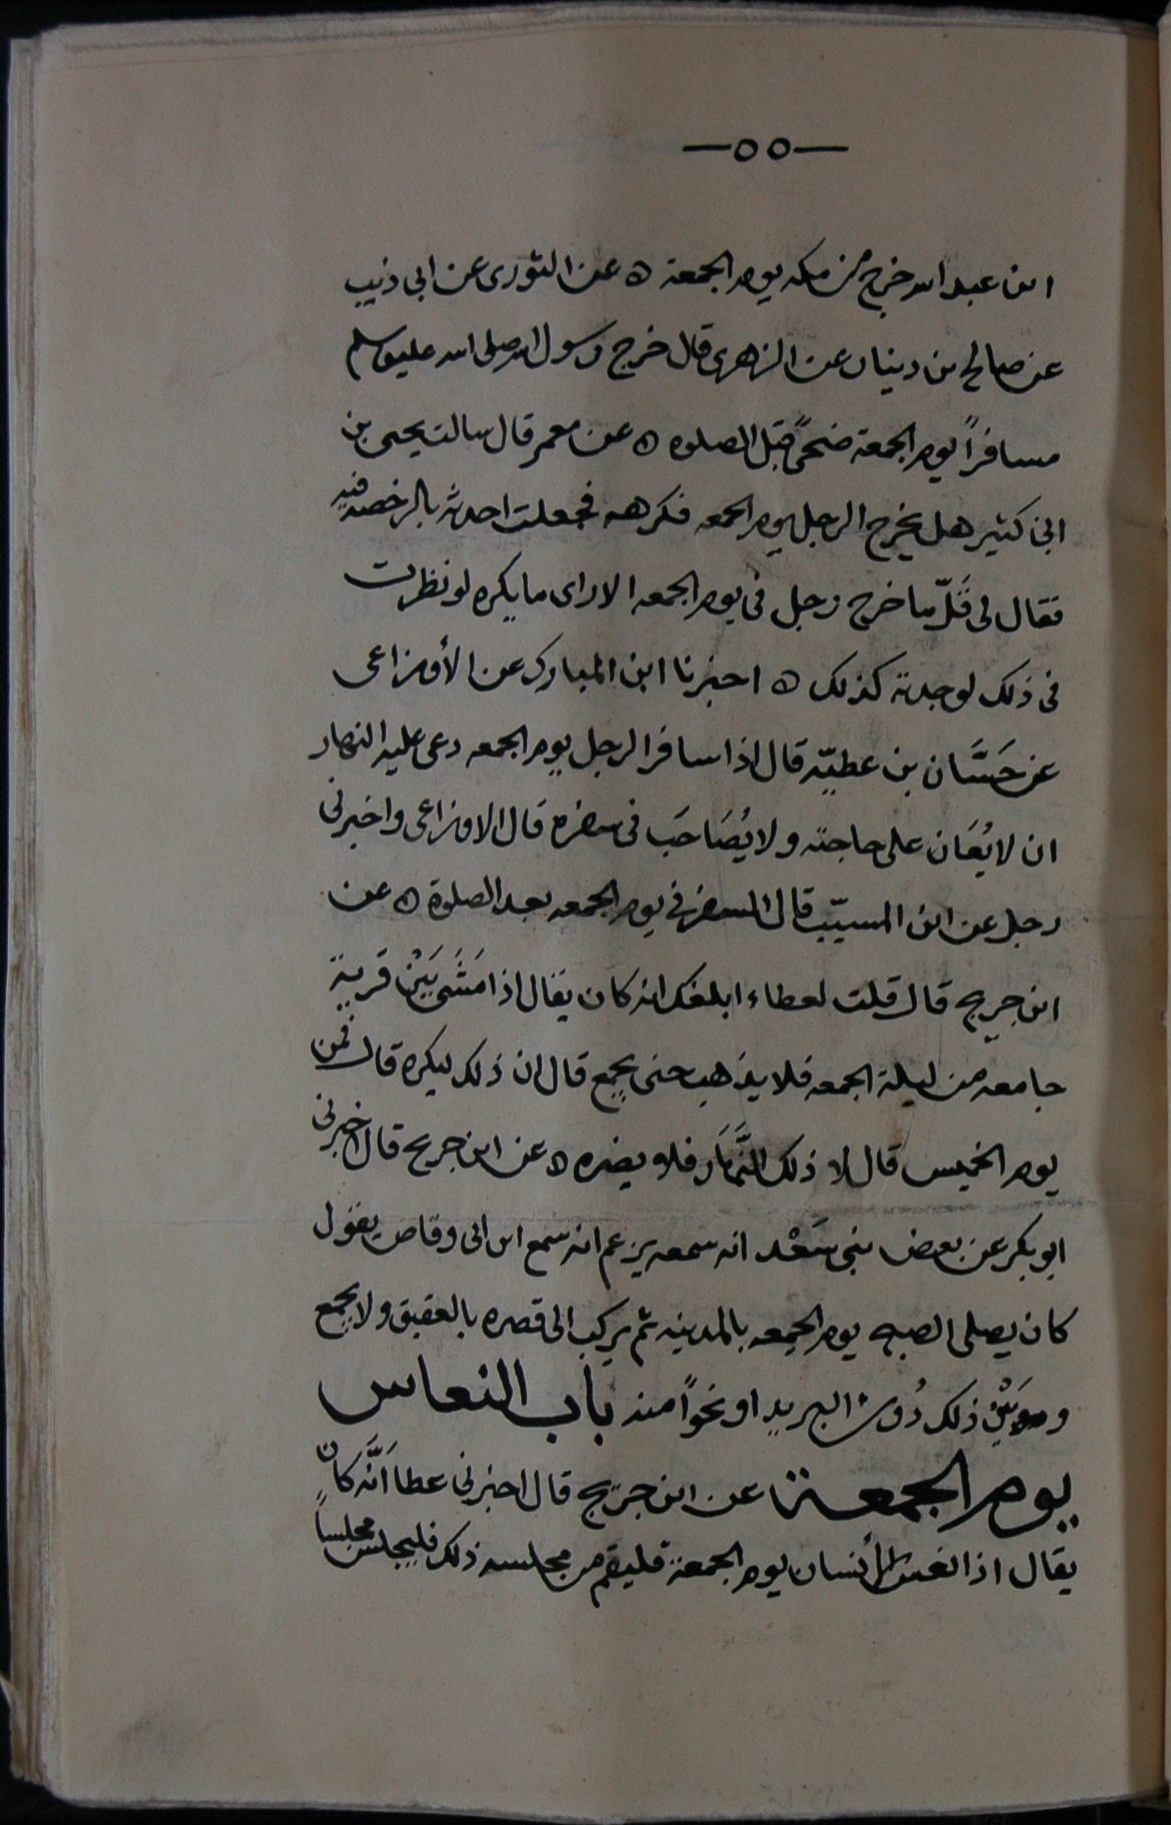 —٥٥—
ابن عبد الله خرج من مكه يوم الجمعة ٥ عن الثورى عن ابى ذئيب
عن صالح بن دينار عن الزهرى قال خرج رسول الله صلى الله عليه وسلم
مسافراً يوم الجمعة ضحًى قبل الصلوه ٥ عن معمر قال سالت يحيى بن
ابى كثير هل يخرج الرجل يوم الجمعه فكرهه فجعلت احدثه بالرخصه فيه
فقال لى قَلّ ما خرج رجل فى يوم الجمعه الا راى ما يكره لو نظرت
فى ذلك لوجدته كذلك ٥ اخبرنا ابن المبارك عن الأوزاعى
عن حَسَّان بن عطيّه قال اذا سافر الرجل يوم الجمعه دعى عليه النهار
ان لا يُعَان على حاجته ولا يُصَاحَب فى سفره قال الاوزاعى واخبرنى
رجل عن ابن المسيّب قال السفر فى يوم الجمعه بعد الصلوة ٥ عن
ابن جريج قال قلت لعطاء ابلغك انه كان يقال اذا امسَى بَيْن قرية
جامعه من ليلة الجمعه فلا يذهب حتى يجمع قال ان ذلك ليكره قال فمن
يوم الخميس قال لا ذلك النَّهَار فلا يضره ٥ عن ابن جريج قال اخبرنى
ابو بكر عن بعض بنى سَعْد انه سمعه يزعم انه سمع ابن ابى وقاص يقول
كان يصلى الصبح يوم الجمعه بالمدينه ثم يركب الى قصره بالعقيق ولا يجمع
وبَيْن ذلك دُون البريد او نحواً منه باب النعاس
يوم الجمعة عن ابن جريج قال اخبرنى عطا أَنَّه كان
يقال اذا نعس الأنسان يوم الجمعة فليقم من مجلسه ذلك فليجلس مجلساً